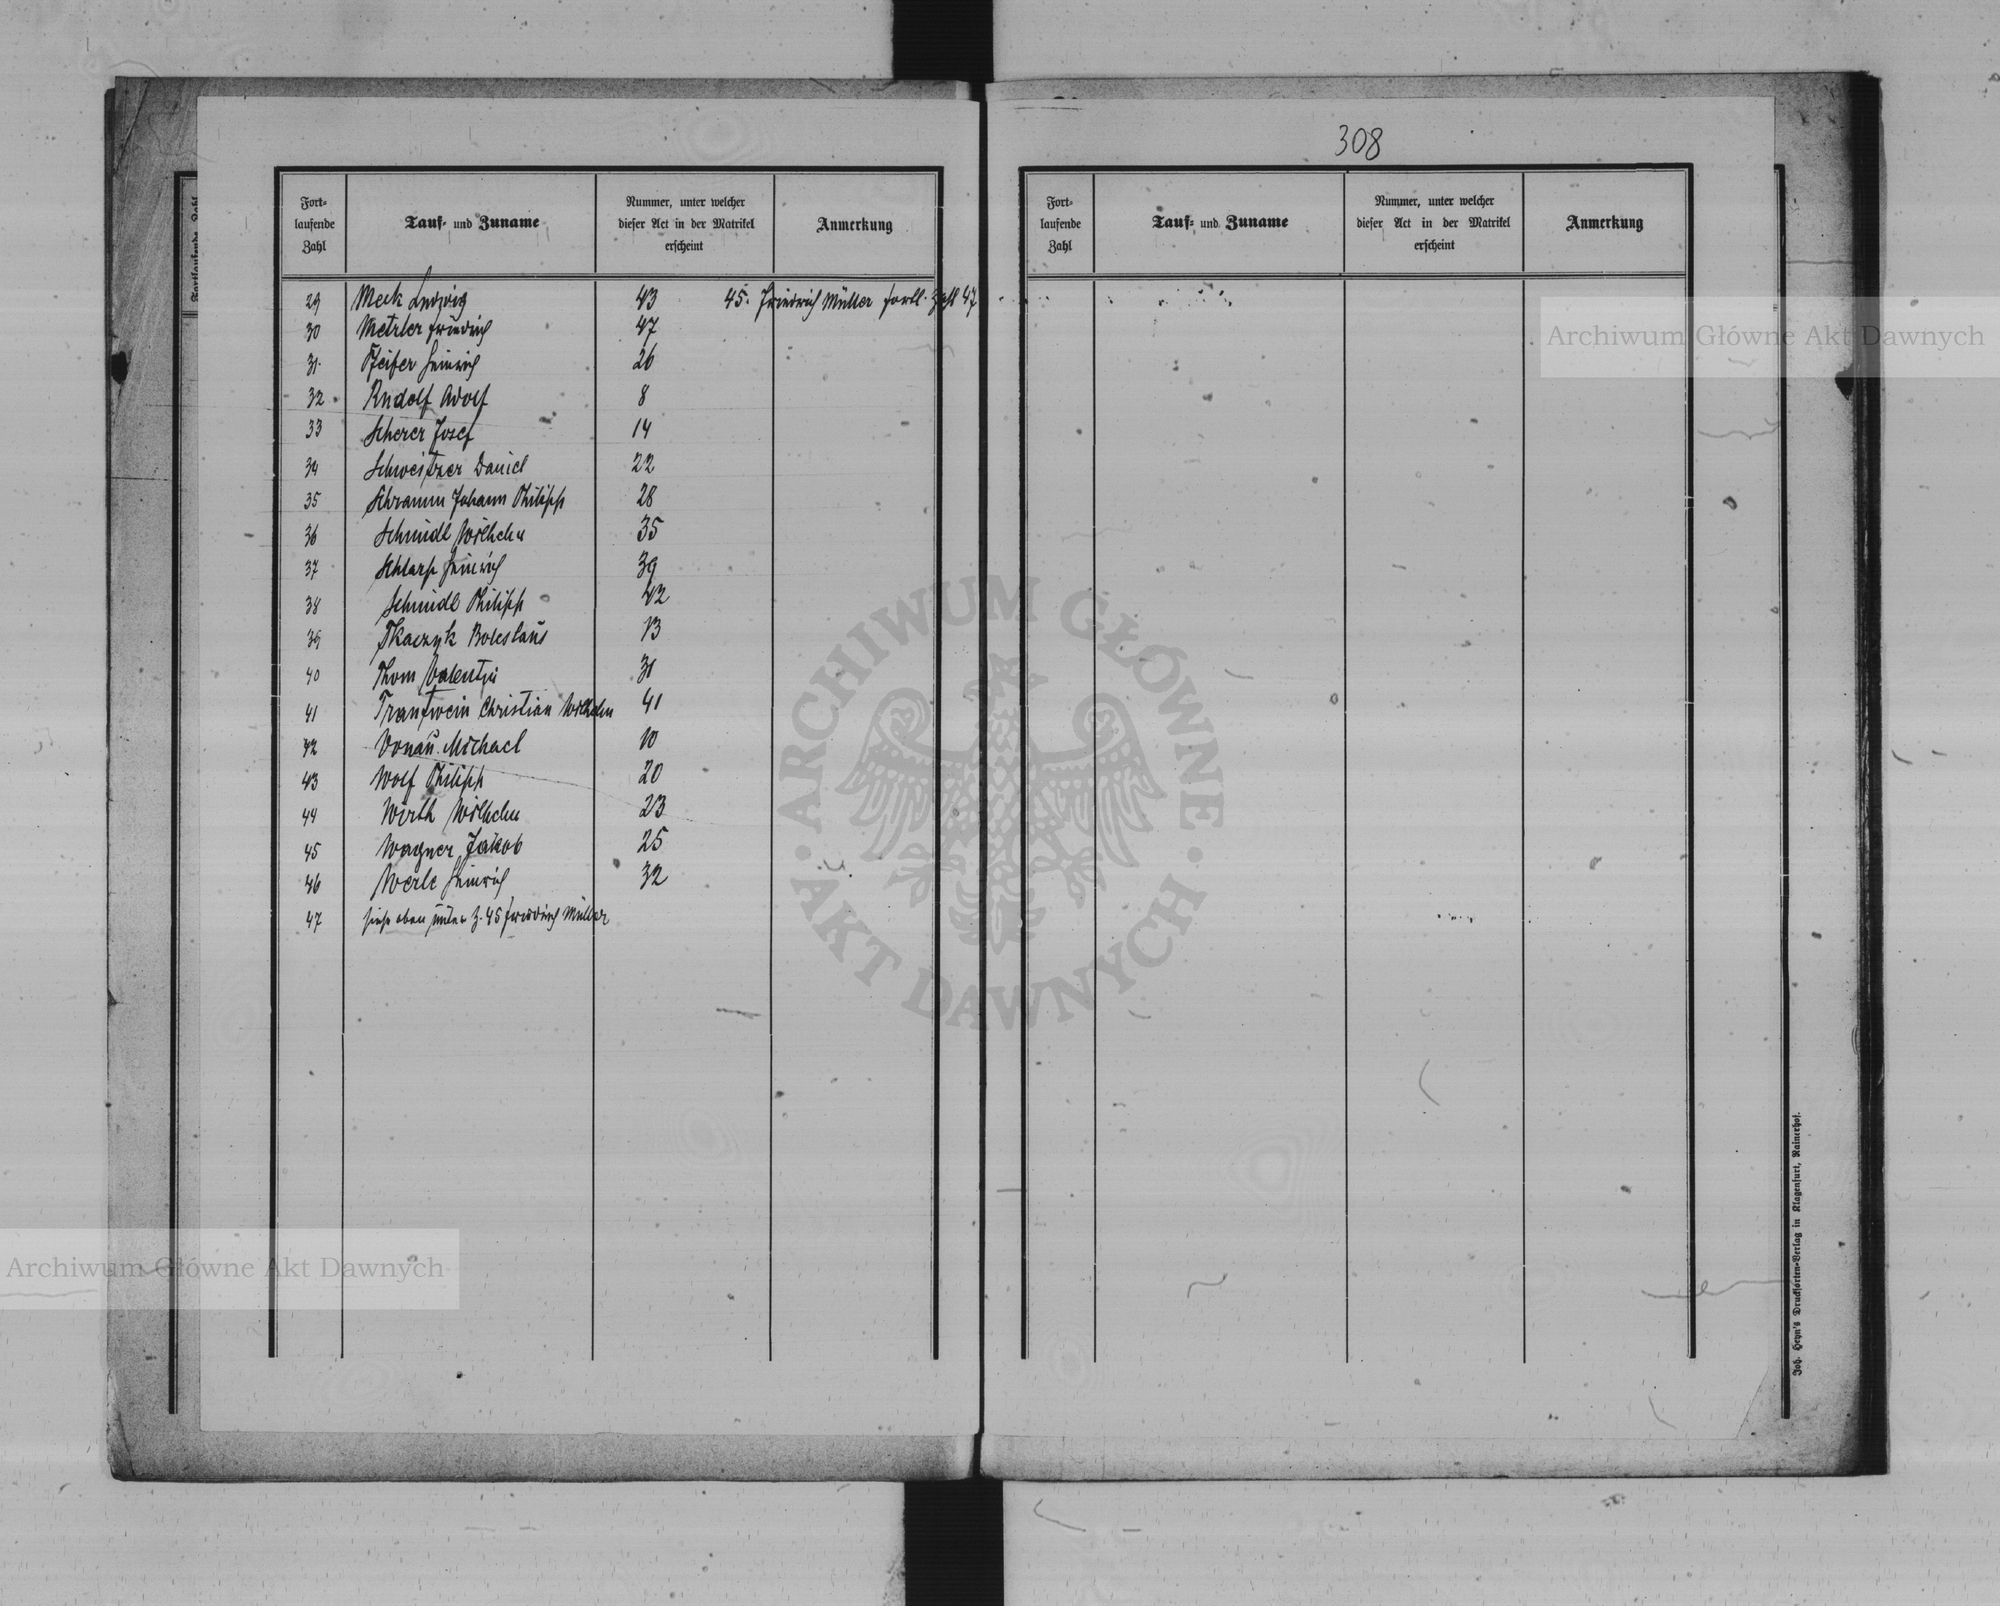 308
Fort-
laufende
Zahl
Tauf- und Zuname
Nummer, unter welcher
dieser Act in der Matrikel
erscheint
Anmerkung
29 Meck Ludwig 43 45. Friedrich Müller fortl. Zahl 47
30 Metzler Friedrich 47
31. Pfeifer Heinrich 26
32 Rudolf Adolf 8
33 Scherer Josef 14
34 Schweitzer Daniel 22
35 Schramm Johann Philipp 28
36 Schmidt Wilhelm 35
37 Schlarp Heinrich 39
38 Schmidt Philipp 42
39 Tkaczyk Boleslaus 13
40 Thom Valentin 31
41 Trautwein Christian Wilhelm 41
42 Vonau Michael 10
43 Wolf Philipp 20
44 Wirth Wilhelm 23
45 Wagner Jakob 25
46 Werle Heinrich 32
47 siehe oben unter Z. 45 Friedrich Müller
Fort-
laufende
Zahl
Tauf- und Zuname
Nummer, unter welcher
dieser Act in der Matrikel
erscheint
Anmerkung
Joh. Heyn's Drucksorten-Verlag in Klagenfurt, Rainerhof.
Fortlaufende Zahl
Archiwum Główne Akt Dawnych
ARCHIWUM GŁÓWNE
AKT DAWNYCH
Archiwum Główne Akt Dawnych